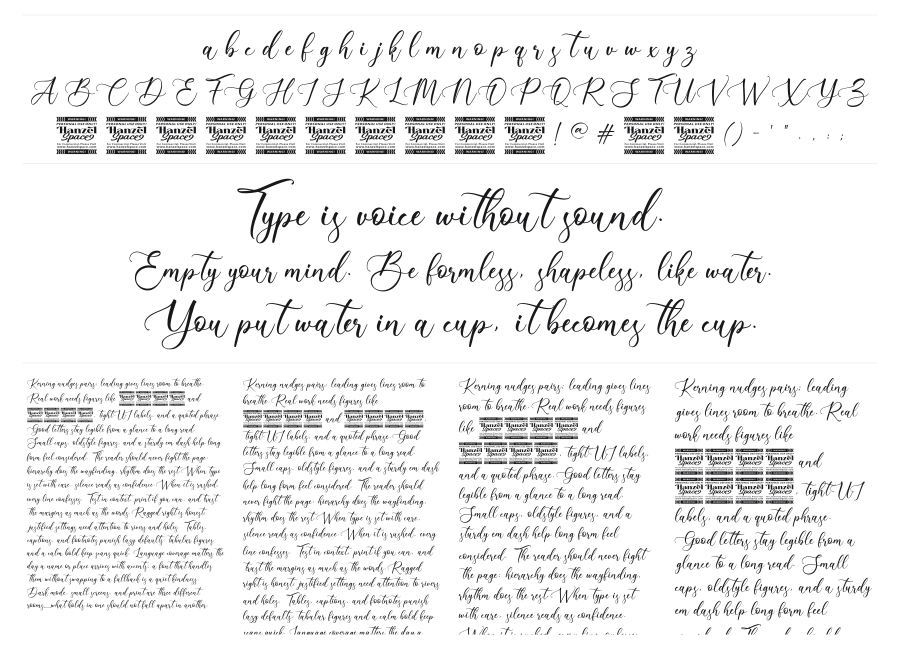 a b c d e f g h i j k l m n o p q r s t u v w x y z
A B C D E F G H I J K L M N O P Q R S T U V W X Y Z
WARNING! PERSONAL USE ONLY! Hanzel Space9 ! @ # ( ) - ' " . , : ;
Type is voice without sound.
Empty your mind. Be formless, shapeless, like water.
You put water in a cup, it becomes the cup.
Kerning nudges pairs; leading gives lines room to breathe
Real work needs figures like and
tight UI labels, and a quoted phrase
Good letters stay legible from a glance to a long read
Small caps, oldstyle figures, and a sturdy em dash help long
form feel considered. The reader should never fight the page;
hierarchy does the wayfinding, rhythm does the rest. When type
is set with care, silence reads as confidence. When it is rushed,
every line confesses. Test in context, print if you can, and trust
the margins as much as the words. Ragged right is honest;
justified settings need attention to rivers and holes. Tables,
captions, and footnotes punish lazy defaults; tabular figures
and a calm bold keep peace quick. Language coverage matters the
day a name or place arrives with accents; a font that handles
them without swapping to a fallback is a quiet kindness.
Dark mode, small screens, and print are three different
rooms—what holds in one should not fall apart in another
Kerning nudges pairs; leading gives lines room to
breathe. Real work needs figures like
and
tight UI labels, and a quoted phrase. Good
letters stay legible from a glance to a long read.
Small caps, oldstyle figures, and a sturdy em dash
help long form feel considered. The reader should
never fight the page; hierarchy does the wayfinding,
rhythm does the rest. When type is set with care,
silence reads as confidence. When it is rushed, every
line confesses. Test in context, print if you can, and
trust the margins as much as the words. Ragged
right is honest; justified settings need attention to rivers
and holes. Tables, captions, and footnotes punish
lazy defaults; tabular figures and a calm bold keep
Language coverage matters the day a
Kerning nudges pairs; leading gives lines
room to breathe. Real work needs figures
like and
, tight UI labels,
and a quoted phrase. Good letters stay
legible from a glance to a long read.
Small caps, oldstyle figures, and a
sturdy em dash help long form feel
considered. The reader should never fight
the page; hierarchy does the wayfinding,
rhythm does the rest. When type is set
with care, silence reads as confidence.
When it is rushed, every line confesses.
Kerning nudges pairs; leading
gives lines room to breathe. Real
work needs figures like
and
, tight UI
labels, and a quoted phrase.
Good letters stay legible from a
glance to a long read. Small
caps, oldstyle figures, and a sturdy
em dash help long form feel